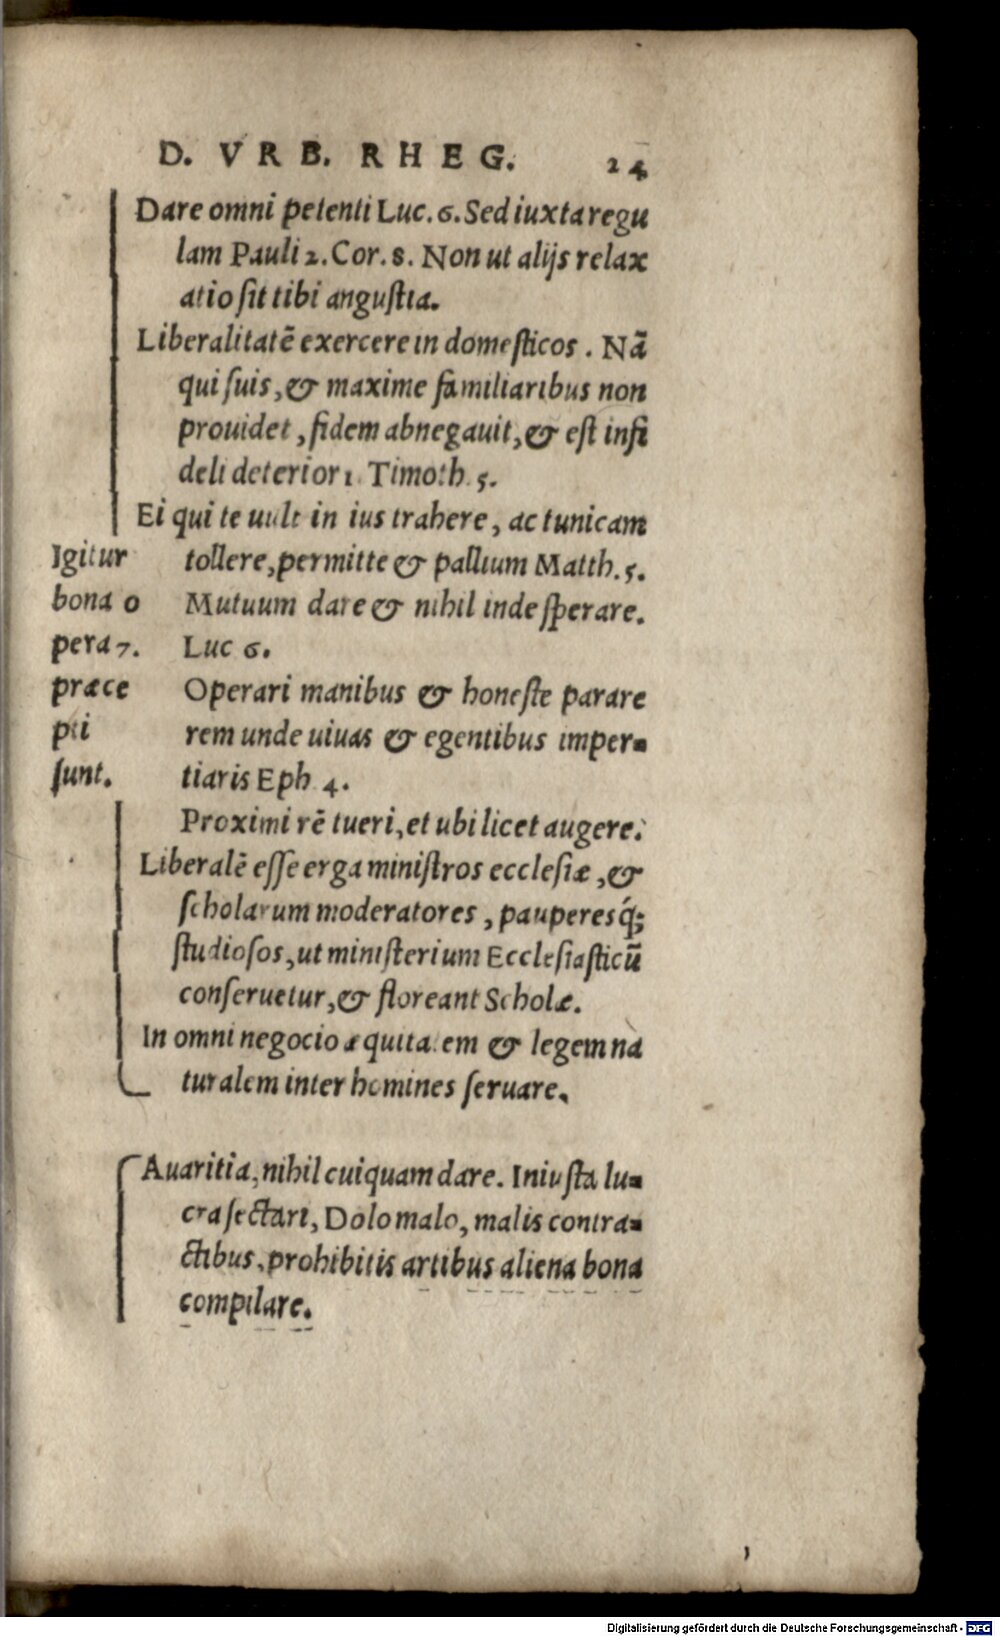 D. VRB. RHEG. 24
Dare omni petenti Luc. 6. Sed iuxta regu
lam Pauli 2. Cor. 8. Non ut alijs relax
atio sit tibi angustia.
Liberalitatē exercere in domesticos. Nā
qui suis, & maxime familiaribus non
prouidet, fidem abnegauit, & est infi
deli deterior 1. Timoth. 5.
Ei qui te uult in ius trahere, ac tunicam
tollere, permitte & pallium Matth. 5.
Mutuum dare & nihil inde sperare.
Luc 6.
Operari manibus & honeste parare
rem unde uiuas & egentibus imper-
tiaris Eph 4.
Igitur
bona o
pera 7.
præce
pti
sunt.
Proximi rē tueri, et ubi licet augere.
Liberalē esse erga ministros ecclesiæ, &
scholarum moderatores, pauperesq́;
studiosos, ut ministerium Ecclesiasticū
conseruetur, & floreant Scholæ.
In omni negocio æquitatem & legem na
turalem inter homines seruare.
Auaritia, nihil cuiquam dare. Iniusta lu-
cra sectari, Dolo malo, malis contra-
ctibus, prohibitis artibus aliena bona
compilare.
Digitalisierung gefördert durch die Deutsche Forschungsgemeinschaft - DFG